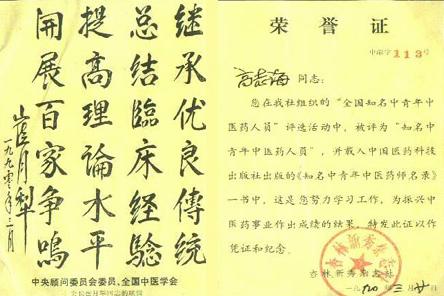 继承优良傳統
总结臨床经驗
提高理論水平
開展百家争鳴
崔月犁
一九九〇年三月
中央顾问委员会委员、全国中医学会
荣誉证
113号
同志：
您在我社组织的“全国知名中青年中
医药人员”评选活动中，被评为“知名中
青年中医药人员”，并载入中国医药科技
出版社出版的《知名中青年中医药师名录》
一书中，这是您努力学习工作，为振兴中
医药事业作出成绩的结果，特发此证以作
凭证和纪念。
杏林新秀杂志社
一九九〇.三月廿日